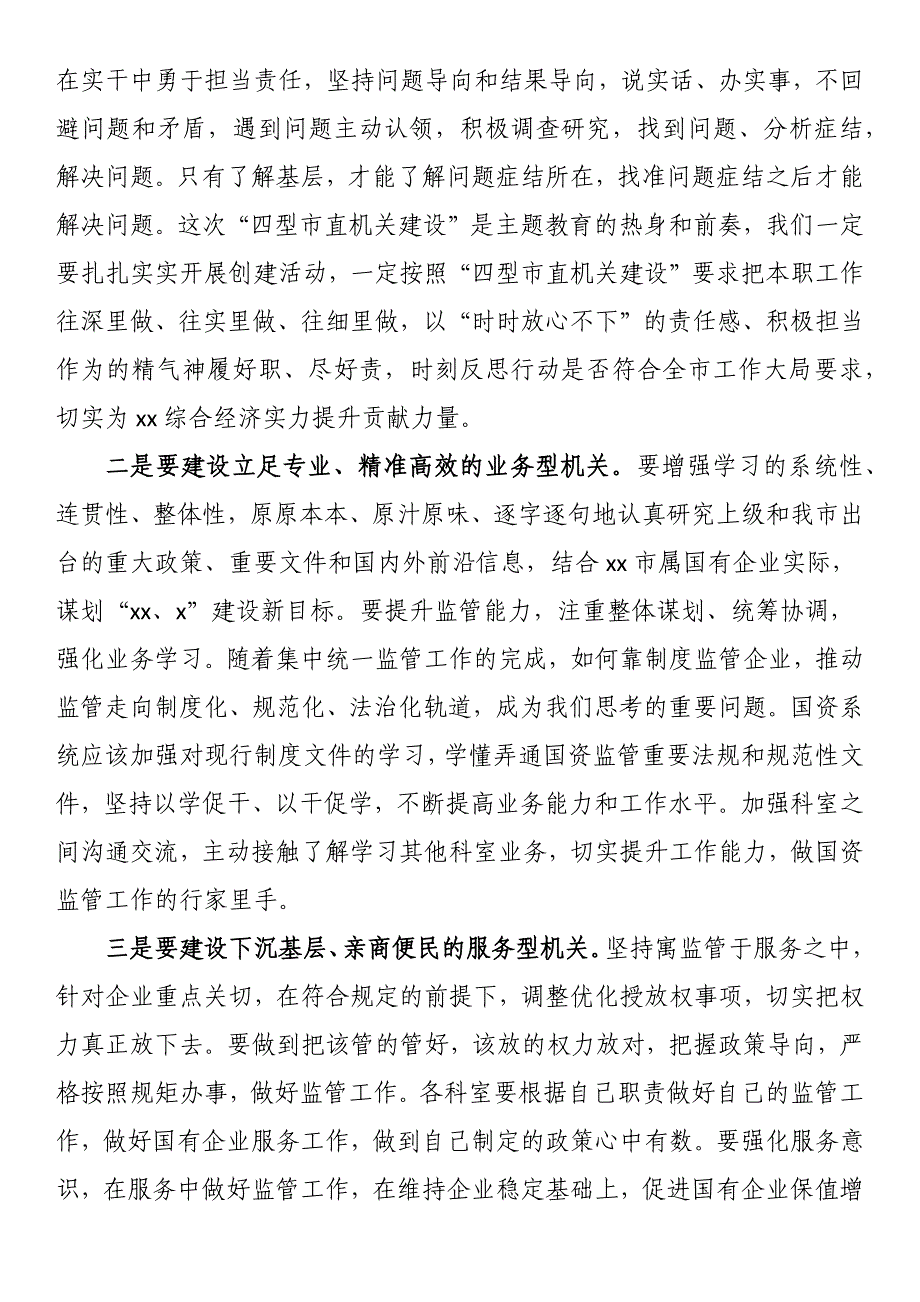 在实干中勇于担当责任，坚持问题导向和结果导向，说实话、办实事，不回
避问题和矛盾，遇到问题主动认领，积极调查研究，找到问题、分析症结，
解决问题。只有了解基层，才能了解问题症结所在，找准问题症结之后才能
解决问题。这次“四型市直机关建设”是主题教育的热身和前奏，我们一定
要扎扎实实开展创建活动，一定按照“四型市直机关建设”要求把本职工作
往深里做、往实里做、往细里做，以“时时放心不下”的责任感、积极担当
作为的精气神履好职、尽好责，时刻反思行动是否符合全市工作大局要求，
切实为 xx 综合经济实力提升贡献力量。
二是要建设立足专业、精准高效的业务型机关。要增强学习的系统性、
连贯性、整体性，原原本本、原汁原味、逐字逐句地认真研究上级和我市出
台的重大政策、重要文件和国内外前沿信息，结合 xx 市属国有企业实际，
谋划“xx、x”建设新目标。要提升监管能力，注重整体谋划、统筹协调，
强化业务学习。随着集中统一监管工作的完成，如何靠制度监管企业，推动
监管走向制度化、规范化、法治化轨道，成为我们思考的重要问题。国资系
统应该加强对现行制度文件的学习，学懂弄通国资监管重要法规和规范性文
件，坚持以学促干、以干促学，不断提高业务能力和工作水平。加强科室之
间沟通交流，主动接触了解学习其他科室业务，切实提升工作能力，做国资
监管工作的行家里手。
三是要建设下沉基层、亲商便民的服务型机关。坚持寓监管于服务之中，
针对企业重点关切，在符合规定的前提下，调整优化授放权事项，切实把权
力真正放下去。要做到把该管的管好，该放的权力放对，把握政策导向，严
格按照规矩办事，做好监管工作。各科室要根据自己职责做好自己的监管工
作，做好国有企业服务工作，做到自己制定的政策心中有数。要强化服务意
识，在服务中做好监管工作，在维持企业稳定基础上，促进国有企业保值增